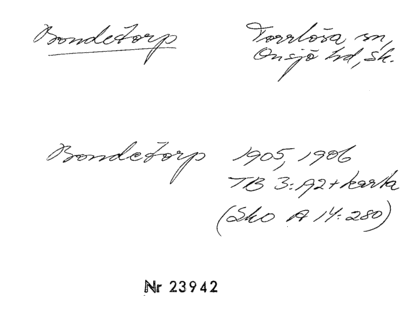 Bondetorp Torrlösa sn,
Onsjö hd, Sk.
Bondetorp 1905, 1906
TB 3:A2+karta
(Sko A 14:280)
Nr 23942